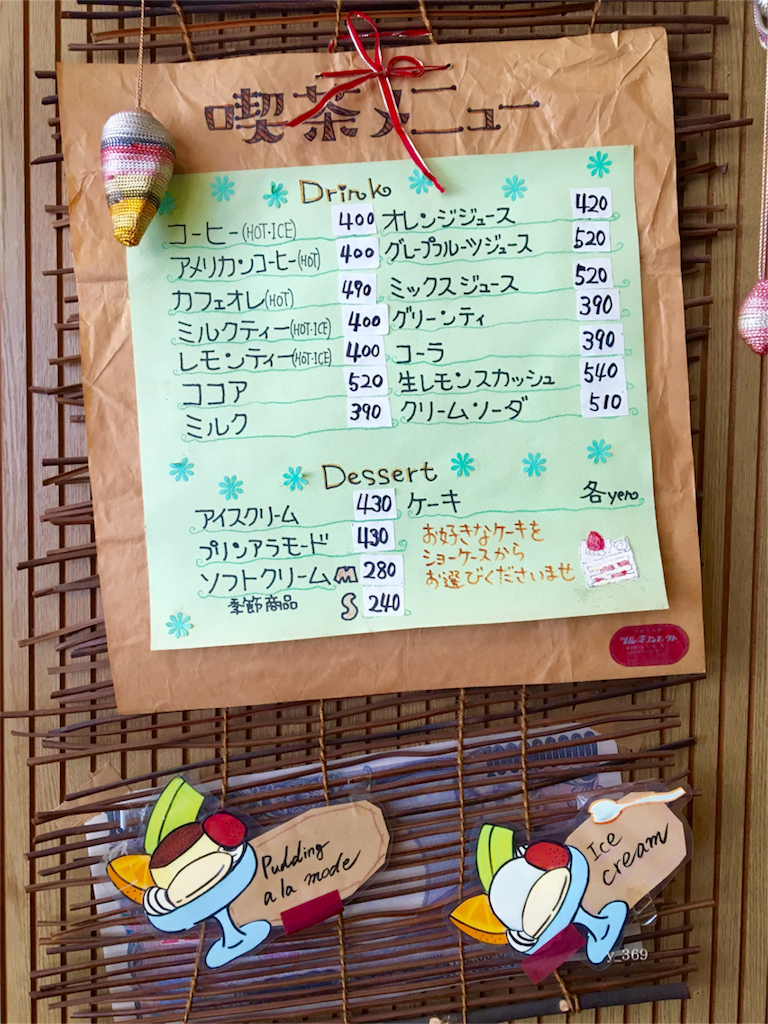 喫茶メニュー
Drink
コーヒー(HOT・ICE) 400
アメリカンコーヒー(HOT) 400
カフェオレ(HOT) 490
ミルクティー(HOT・ICE) 400
レモンティー(HOT・ICE) 400
ココア 520
ミルク 390
オレンジジュース 420
グレープフルーツジュース 520
ミックスジュース 520
グリーンティ 390
コーラ 390
生レモンスカッシュ 540
クリームソーダ 510
Dessert
アイスクリーム 430
プリンアラモード 430
ソフトクリーム M 280
季節商品 S 240
ケーキ 各yen
お好きなケーキを
ショーケースから
お選びくださいませ
Pudding
a la mode
Ice
cream
y_369